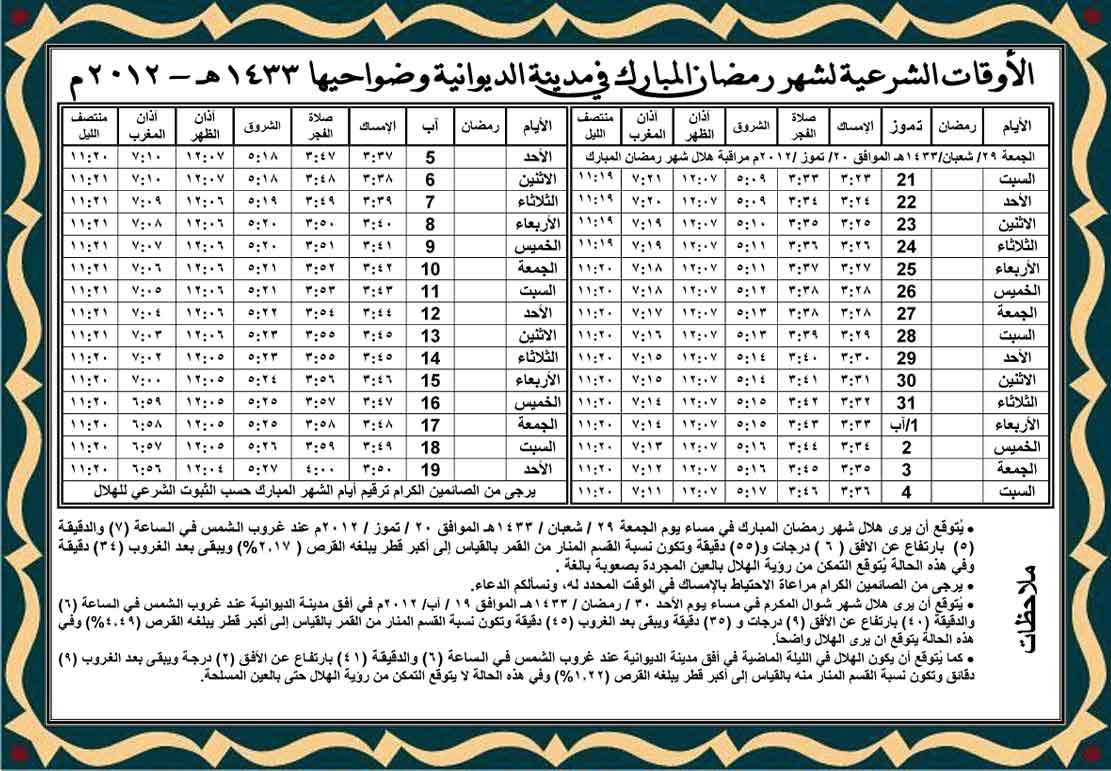 الأوقات الشرعية لشهر رمضان المبارك في مدينة الديوانية وضواحيها ١٤٣٣هـ – ٢٠١٢م
الأيام رمضان تموز الإمساك صلاة الفجر الشروق أذان الظهر أذان المغرب منتصف الليل
الجمعة ٢٩/ شعبان/١٤٣٣هـ الموافق ٢٠/ تموز /٢٠١٢م مراقبة هلال شهر رمضان المبارك
السبت 21 ٣:٢٣ ٣:٣٣ ٥:٠٩ ١٢:٠٧ ٧:٢١ ١١:١٩
الأحد 22 ٣:٢٤ ٣:٣٤ ٥:٠٩ ١٢:٠٧ ٧:٢٠ ١١:١٩
الاثنين 23 ٣:٢٥ ٣:٣٥ ٥:١٠ ١٢:٠٧ ٧:١٩ ١١:١٩
الثلاثاء 24 ٣:٢٦ ٣:٣٦ ٥:١١ ١٢:٠٧ ٧:١٩ ١١:١٩
الأربعاء 25 ٣:٢٧ ٣:٣٧ ٥:١١ ١٢:٠٧ ٧:١٨ ١١:٢٠
الخميس 26 ٣:٢٨ ٣:٣٨ ٥:١٢ ١٢:٠٧ ٧:١٨ ١١:٢٠
الجمعة 27 ٣:٢٨ ٣:٣٨ ٥:١٣ ١٢:٠٧ ٧:١٧ ١١:٢٠
السبت 28 ٣:٢٩ ٣:٣٩ ٥:١٣ ١٢:٠٧ ٧:١٦ ١١:٢٠
الأحد 29 ٣:٣٠ ٣:٤٠ ٥:١٤ ١٢:٠٧ ٧:١٥ ١١:٢٠
الاثنين 30 ٣:٣١ ٣:٤١ ٥:١٤ ١٢:٠٧ ٧:١٥ ١١:٢٠
الثلاثاء 31 ٣:٣٢ ٣:٤٢ ٥:١٥ ١٢:٠٧ ٧:١٤ ١١:٢٠
الأربعاء 1/آب ٣:٣٣ ٣:٤٣ ٥:١٥ ١٢:٠٧ ٧:١٤ ١١:٢٠
الخميس 2 ٣:٣٤ ٣:٤٤ ٥:١٦ ١٢:٠٧ ٧:١٣ ١١:٢٠
الجمعة 3 ٣:٣٥ ٣:٤٥ ٥:١٦ ١٢:٠٧ ٧:١٢ ١١:٢٠
السبت 4 ٣:٣٦ ٣:٤٦ ٥:١٧ ١٢:٠٧ ٧:١١ ١١:٢٠
الأيام رمضان آب الإمساك صلاة الفجر الشروق أذان الظهر أذان المغرب منتصف الليل
الأحد 5 ٣:٣٧ ٣:٤٧ ٥:١٨ ١٢:٠٧ ٧:١٠ ١١:٢٠
الاثنين 6 ٣:٣٨ ٣:٤٨ ٥:١٨ ١٢:٠٧ ٧:١٠ ١١:٢١
الثلاثاء 7 ٣:٣٩ ٣:٤٩ ٥:١٩ ١٢:٠٦ ٧:٠٩ ١١:٢١
الأربعاء 8 ٣:٤٠ ٣:٥٠ ٥:٢٠ ١٢:٠٦ ٧:٠٨ ١١:٢١
الخميس 9 ٣:٤١ ٣:٥١ ٥:٢٠ ١٢:٠٦ ٧:٠٧ ١١:٢١
الجمعة 10 ٣:٤٢ ٣:٥٢ ٥:٢١ ١٢:٠٦ ٧:٠٦ ١١:٢١
السبت 11 ٣:٤٣ ٣:٥٣ ٥:٢١ ١٢:٠٦ ٧:٠٥ ١١:٢١
الأحد 12 ٣:٤٤ ٣:٥٤ ٥:٢٢ ١٢:٠٦ ٧:٠٤ ١١:٢١
الاثنين 13 ٣:٤٥ ٣:٥٥ ٥:٢٣ ١٢:٠٦ ٧:٠٣ ١١:٢١
الثلاثاء 14 ٣:٤٥ ٣:٥٥ ٥:٢٣ ١٢:٠٥ ٧:٠٢ ١١:٢٠
الأربعاء 15 ٣:٤٦ ٣:٥٦ ٥:٢٤ ١٢:٠٥ ٧:٠٠ ١١:٢٠
الخميس 16 ٣:٤٧ ٣:٥٧ ٥:٢٥ ١٢:٠٥ ٦:٥٩ ١١:٢٠
الجمعة 17 ٣:٤٨ ٣:٥٨ ٥:٢٥ ١٢:٠٥ ٦:٥٨ ١١:٢٠
السبت 18 ٣:٤٩ ٣:٥٩ ٥:٢٦ ١٢:٠٥ ٦:٥٧ ١١:٢٠
الأحد 19 ٣:٥٠ ٤:٠٠ ٥:٢٧ ١٢:٠٤ ٦:٥٦ ١١:٢٠
يرجى من الصائمين الكرام ترقيم أيام الشهر المبارك حسب الثبوت الشرعي للهلال
ملاحظات
• يُتوقع أن يرى هلال شهر رمضان المبارك في مساء يوم الجمعة ٢٩ / شعبان / ١٤٣٣هـ الموافق ٢٠ / تموز / ٢٠١٢م عند غروب الشمس في الساعة (٧) والدقيقة
(٥) بارتفاع عن الأفق ( ٦ ) درجات و(٥٥) دقيقة وتكون نسبة القسم المنار من القمر بالقياس إلى أكبر قطر يبلغه القرص ( ٢.٠١٧%) ويبقى بعد الغروب (٣٤) دقيقة
وفي هذه الحالة يُتوقع التمكن من رؤية الهلال بالعين المجردة بصعوبة بالغة .
• يرجى من الصائمين الكرام مراعاة الاحتياط بالإمساك في الوقت المحدد له، ونسألكم الدعاء.
• يُتوقع أن يرى هلال شهر شوال المكرم في مساء يوم الأحد ٣٠ / رمضان / ١٤٣٣هـ الموافق ١٩ / آب/ ٢٠١٢م في أفق مدينة الديوانية عند غروب الشمس في الساعة (٦)
والدقيقة (٤٠) بارتفاع عن الأفق (٩) درجات و (٣٥) دقيقة ويبقى بعد الغروب (٤٥) دقيقة وتكون نسبة القسم المنار من القمر بالقياس إلى أكبر قطر يبلغه القرص (٤.٤٩%) وفي
هذه الحالة يتوقع ان يرى الهلال واضحاً.
• كما يُتوقع أن يكون الهلال في الليلة الماضية في أفق مدينة الديوانية عند غروب الشمس في الساعة (٦) والدقيقة (٤١) بارتفاع عن الأفق (٢) درجة ويبقى بعد الغروب (٩)
دقائق وتكون نسبة القسم المنار منه بالقياس إلى أكبر قطر يبلغه القرص (١.٢٢%) وفي هذه الحالة لا يتوقع التمكن من رؤية الهلال حتى بالعين المسلحة.